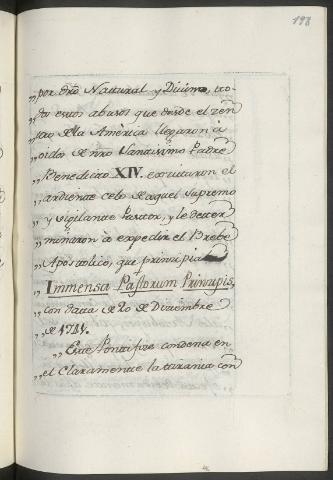 198
„ por dro Natural y Divino, to-
„ dos estos abusos que desde el
„ de la América llegaron à
„ oidos de nro Santisimo Padre
„ Benedicto XIV. excitaron el
„ ardiente celo de aquel Supremo
„ y vigilante Pastor, y le deter-
„ minaron à expedir el Brebe
„ Apostolico, que principia
„ Immensa Pastorum Principis,
„ con data de 20 de Diciembre
„ de 1741.
„ Este Pontifice condena en
„ el claramente la tirania con